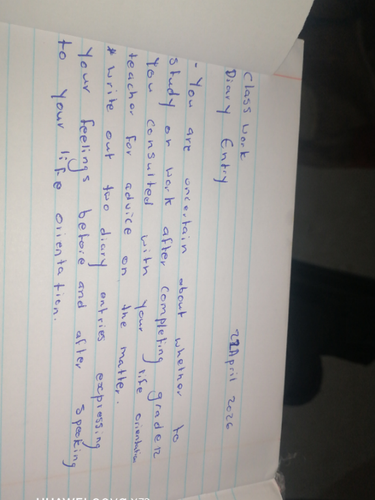 Class work
Diary Entry 22 April 2026
- You are uncertain about whether to
study or work after completing grade 12
You consulted with your life orientation
teacher for advice on the matter.
* Write out two diary entries expressing
your feelings before and after speaking
to your life orientation.